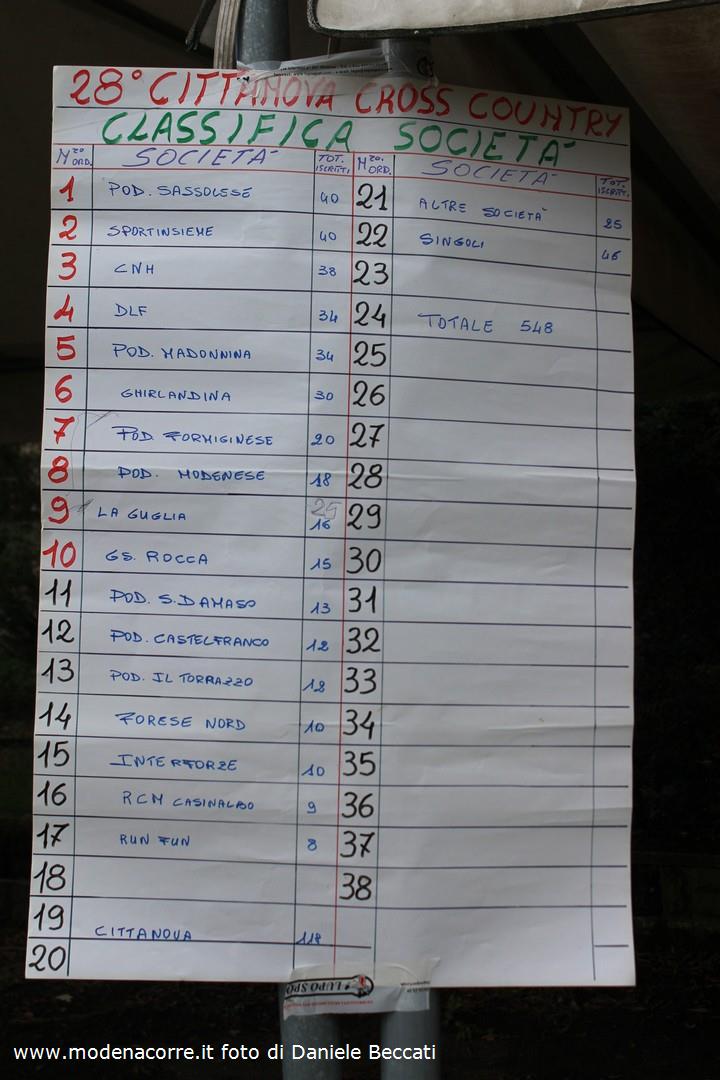 28° CITTANOVA CROSS COUNTRY
CLASSIFICA SOCIETÀ
N.ro ORD. SOCIETÀ TOT. ISCRITTI
1 POD. SASSOLESE 40
2 SPORTINSIEME 40
3 CNH 38
4 DLF 34
5 POD. MADONNINA 34
6 GHIRLANDINA 30
7 POD FORMIGINESE 20
8 POD. MODENESE 18
9 LA GUGLIA 25 16
10 GS. ROCCA 15
11 POD. S.DAMASO 13
12 POD. CASTELFRANCO 12
13 POD. IL TORRAZZO 12
14 FORESE NORD 10
15 INTERFORZE 10
16 RCM CASINALBO 9
17 RUN FUN 8
18
19 CITTANOVA 118
20
N.ro ORD. SOCIETÀ TOT. ISCRITTI
21 ALTRE SOCIETÀ 25
22 SINGOLI 46
23
24 TOTALE 548
25
26
27
28
29
30
31
32
33
34
35
36
37
38
LUPO SPO
www.modenacorre.it foto di Daniele Beccati